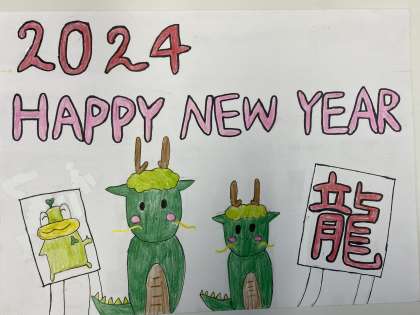 2024
HAPPY NEW YEAR
龍